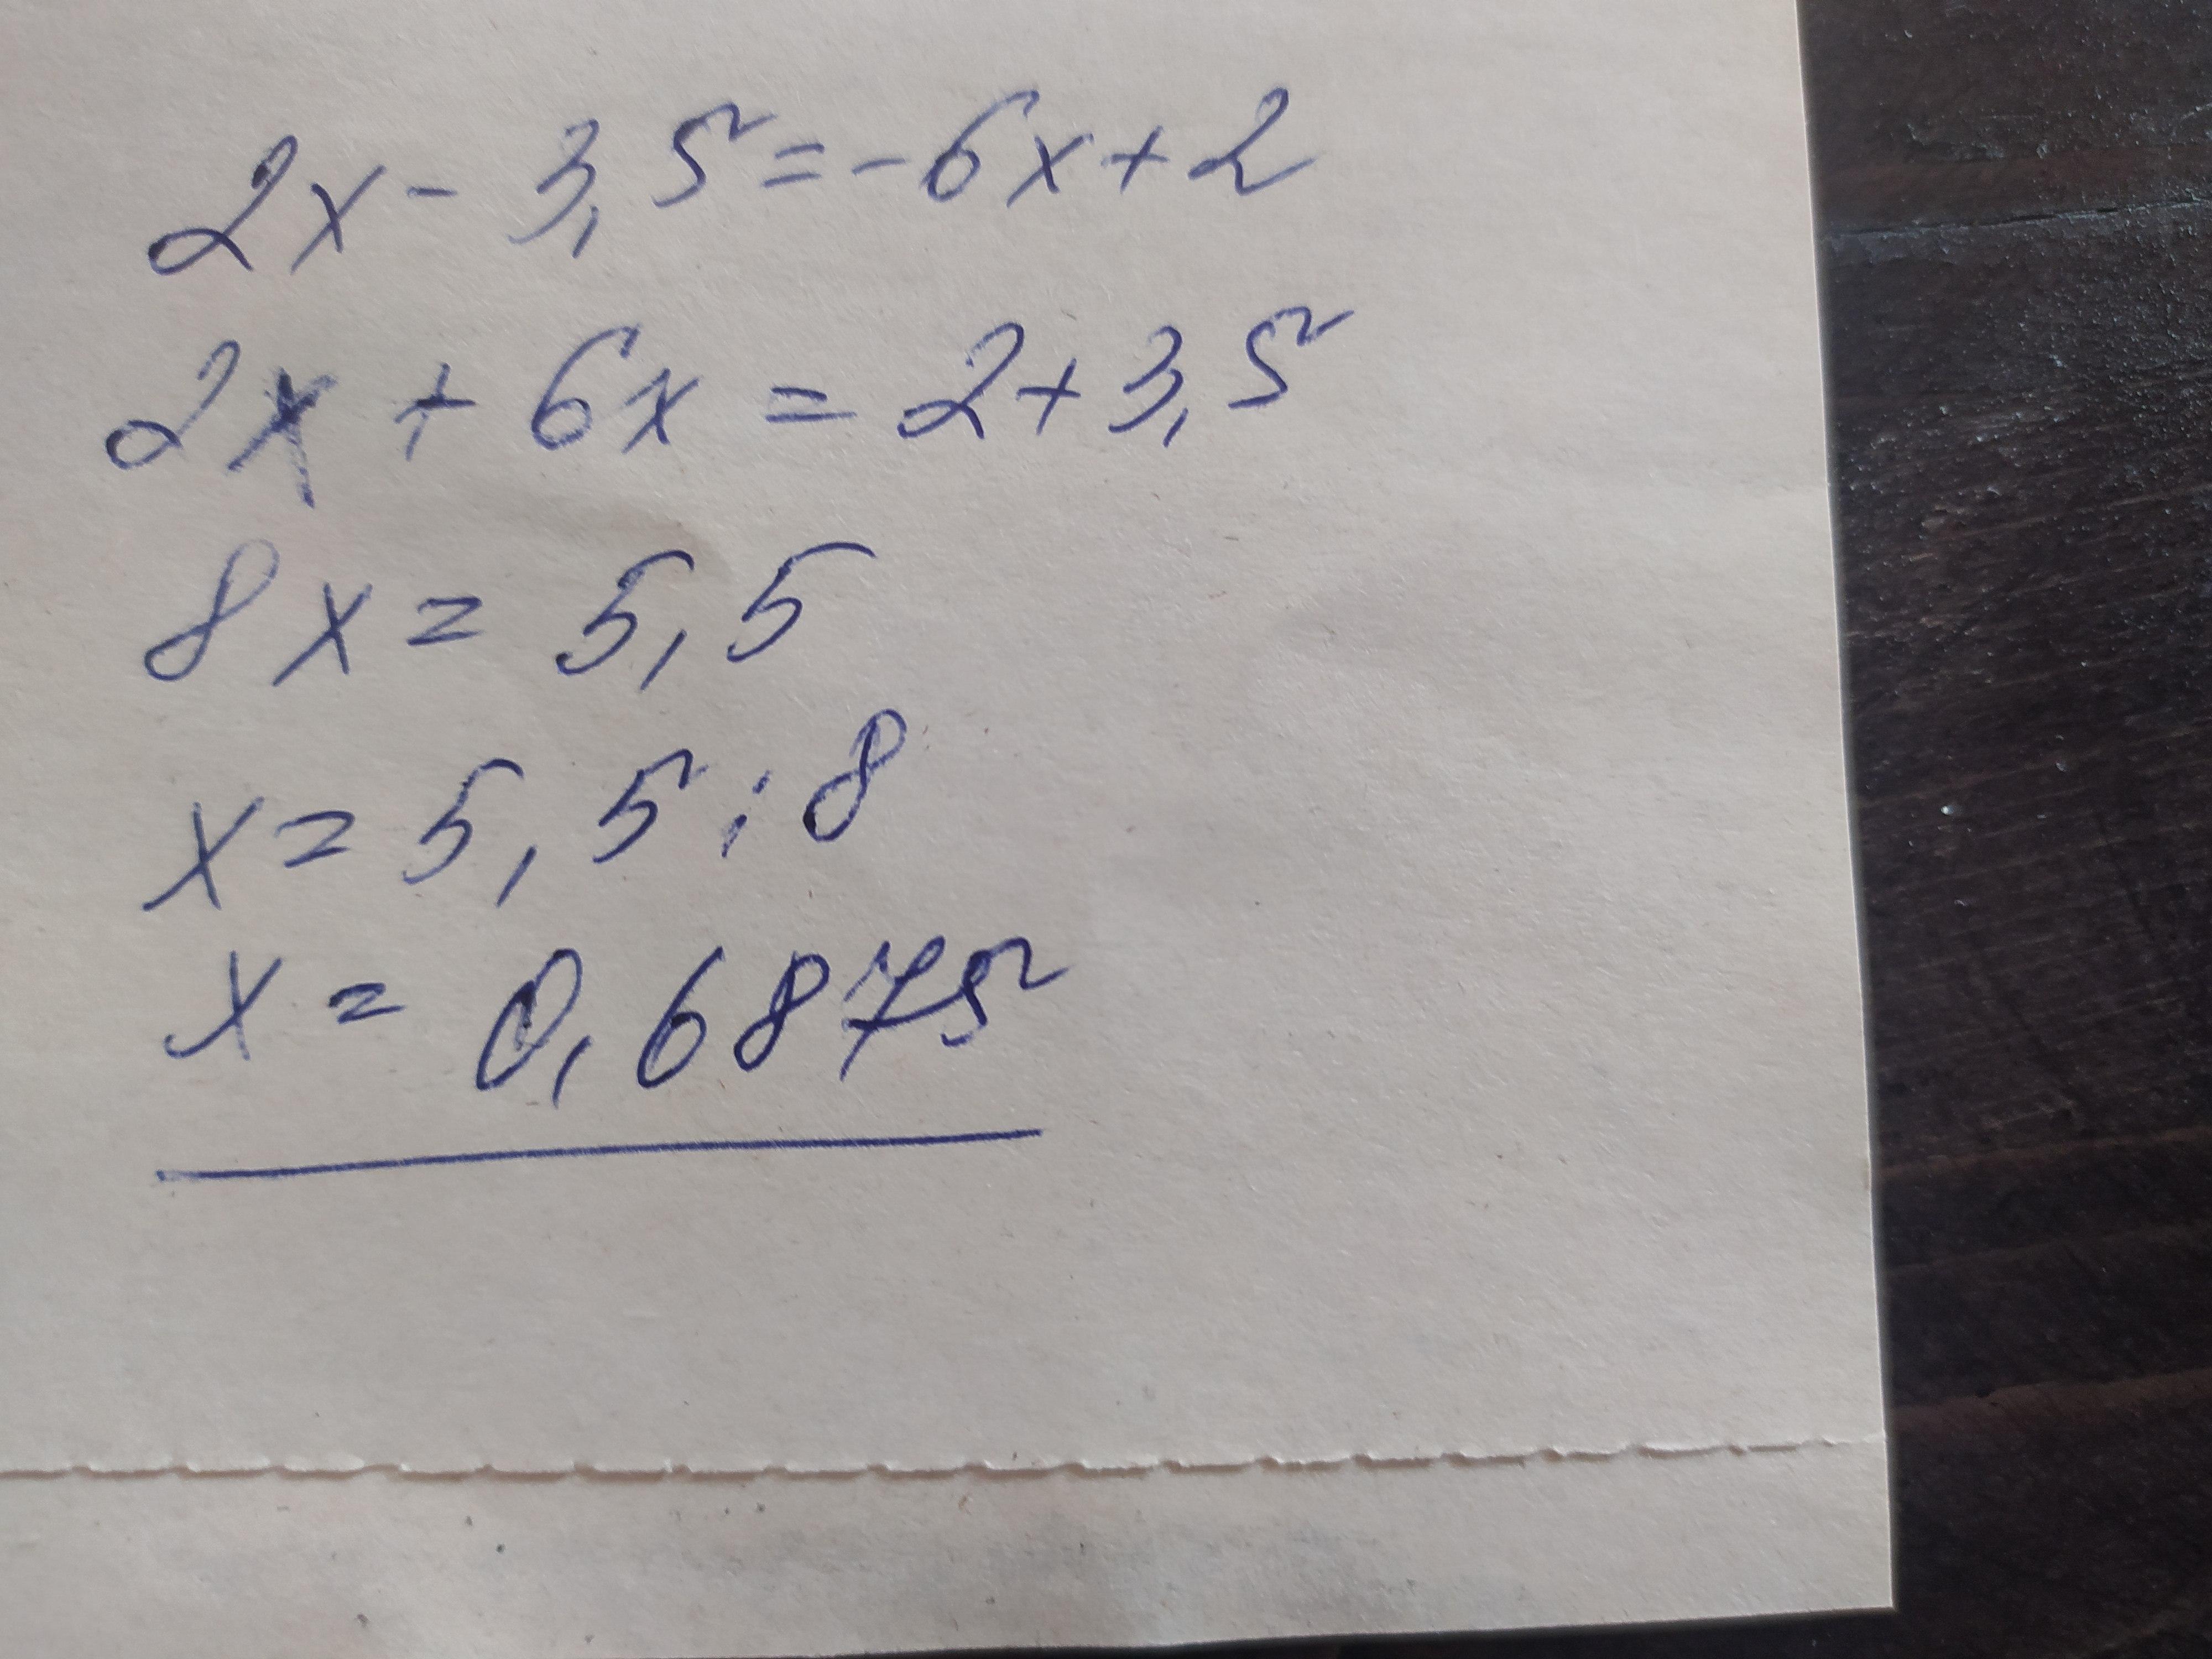 2x - 3,5 = -6x + 2
2x + 6x = 2 + 3,5
8x = 5,5
x = 5,5 : 8
x = 0,6875